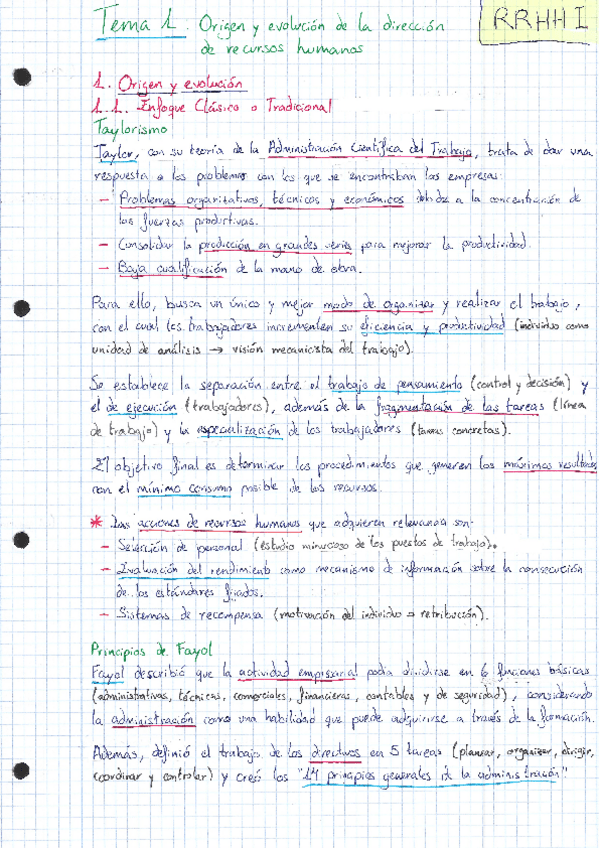 Tema 1. Origen y evolución de la dirección
de recursos humanos
RRHH I
1. Origen y evolución
1.1. Enfoque Clásico o Tradicional
Taylorismo
Taylor, con su teoría de la Administración Científica del Trabajo, trata de dar una
respuesta a los problemas con los que se encontraban las empresas:
- Problemas organizativos, técnicos y económicos debido a la concentración de
las fuerzas productivas.
- Consolidar la producción en grandes series para mejorar la productividad.
- Baja cualificación de la mano de obra.
Para ello, busca un único y mejor modo de organizar y realizar el trabajo,
con el cual los trabajadores incrementen su eficiencia y productividad (individuo como
unidad de análisis → visión mecanicista del trabajo).
Se establece la separación entre el trabajo de pensamiento (control y decisión) y
el de ejecución (trabajadores), además de la fragmentación de las tareas (línea
de trabajo) y la especialización de los trabajadores (tareas concretas).
El objetivo final es determinar los procedimientos que generen los máximos resultados
con el mínimo consumo posible de los recursos.
* Las acciones de recursos humanos que adquieren relevancia son:
- Selección de personal (estudio minucioso de los puestos de trabajo).
- Evaluación del rendimiento como mecanismo de información sobre la consecución
de los estándares fijados.
- Sistemas de recompensa (motivación del individuo → retribución).
Principios de Fayol
Fayol describió que la actividad empresarial podía dividirse en 6 funciones básicas
(administrativas, técnicas, comerciales, financieras, contables y de seguridad), considerando
la administración como una habilidad que puede adquirirse a través de la formación.
Además, definió el trabajo de los directivos en 5 tareas (planear, organizar, dirigir,
coordinar y controlar) y creó los "14 principios generales de la administración"